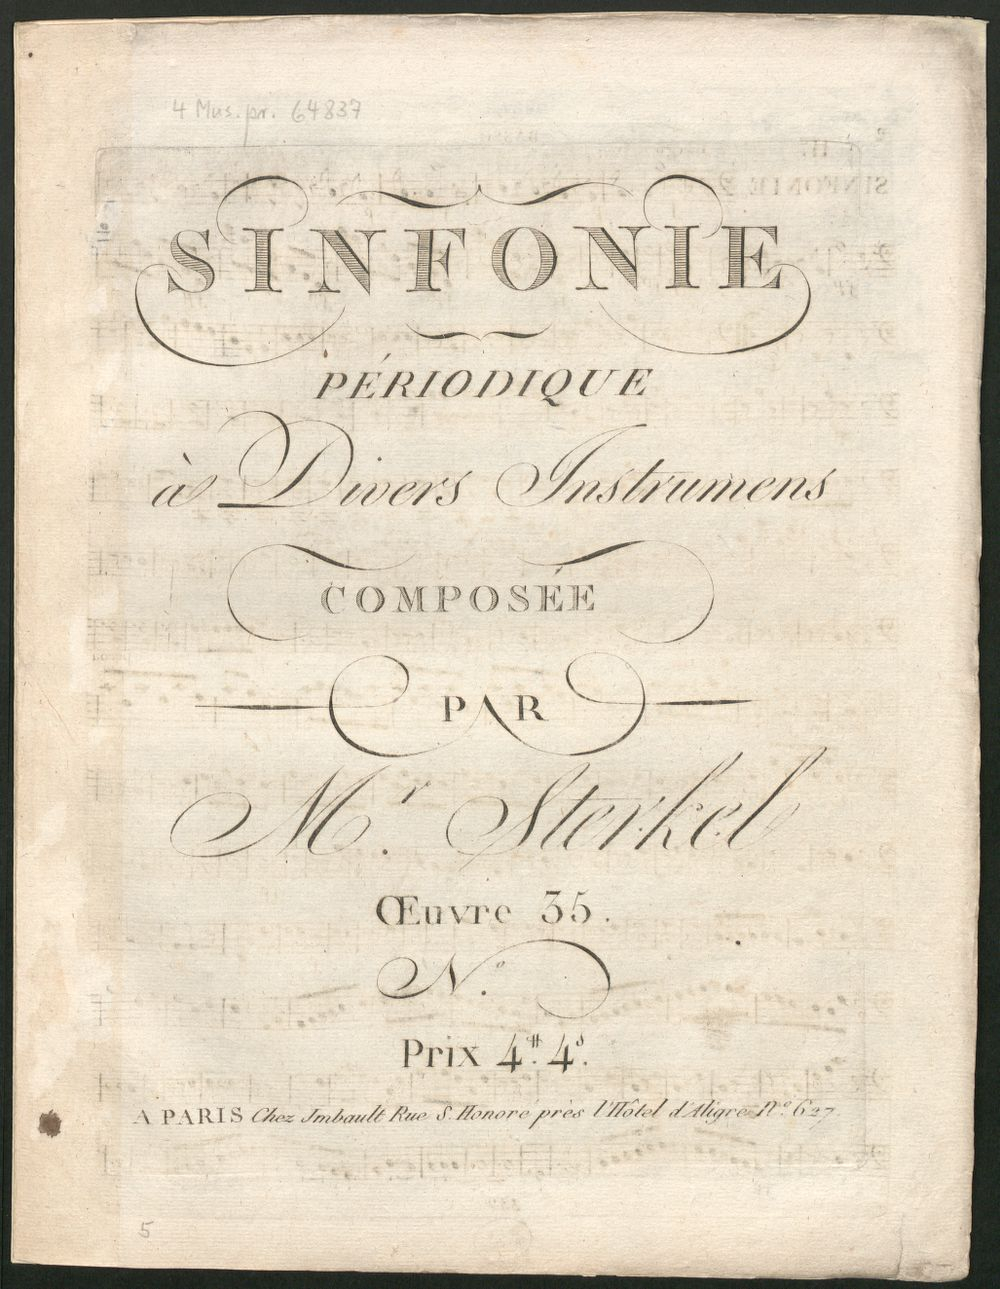 4 Mus. pr. 64837
SINFONIE
PÉRIODIQUE
à Divers Instrumens
COMPOSÉE
PAR
M.r Sterkel
Œuvre 35.
N.o
Prix 4.# 4.s
A PARIS Chez Imbault Rue S. Honoré près l'Hôtel d'Aligre N.o 627
5